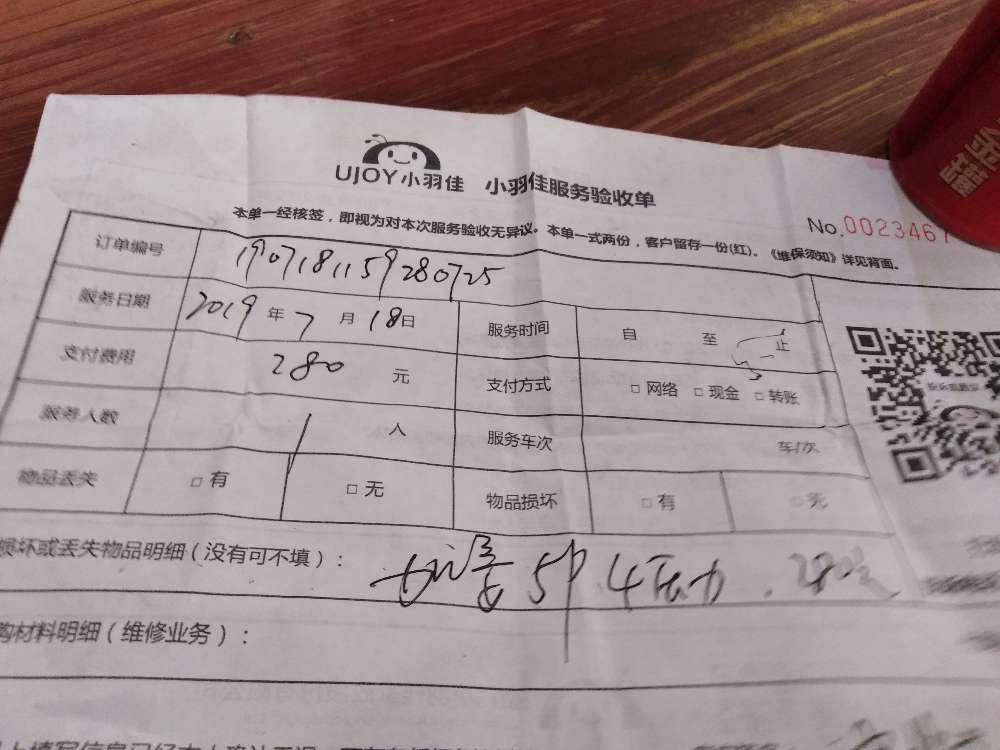 UJOY小羽佳 小羽佳服务验收单
No.0023467
本单一经核签，即视为对本次服务验收无异议。本单一式两份，客户留存一份(红)。《维保须知》详见背面。
订单编号 1907181159280725
服务日期 2019年7月18日 服务时间 自 至 止
支付费用 280元 支付方式 □网络 □现金 □转账
服务人数 1人 服务车次 车/次
物品丢失 □有 □无 物品损坏 □有 □无
损坏或丢失物品明细（没有可不填）： 5P 4压力. 280元
购材料明细（维修业务）：